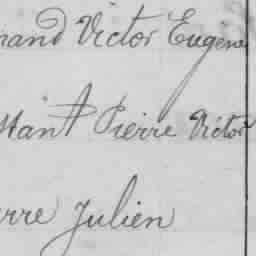 mand Victor Eugène
stant Pierre Victor
erre Julien